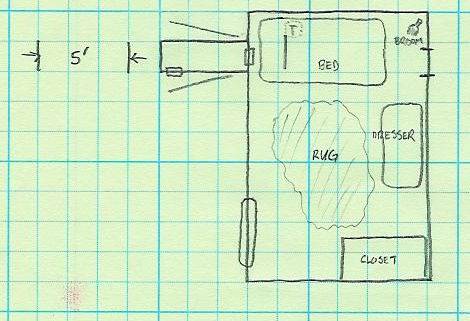 T
BROOM
5'
BED
DRESSER
RUG
CLOSET